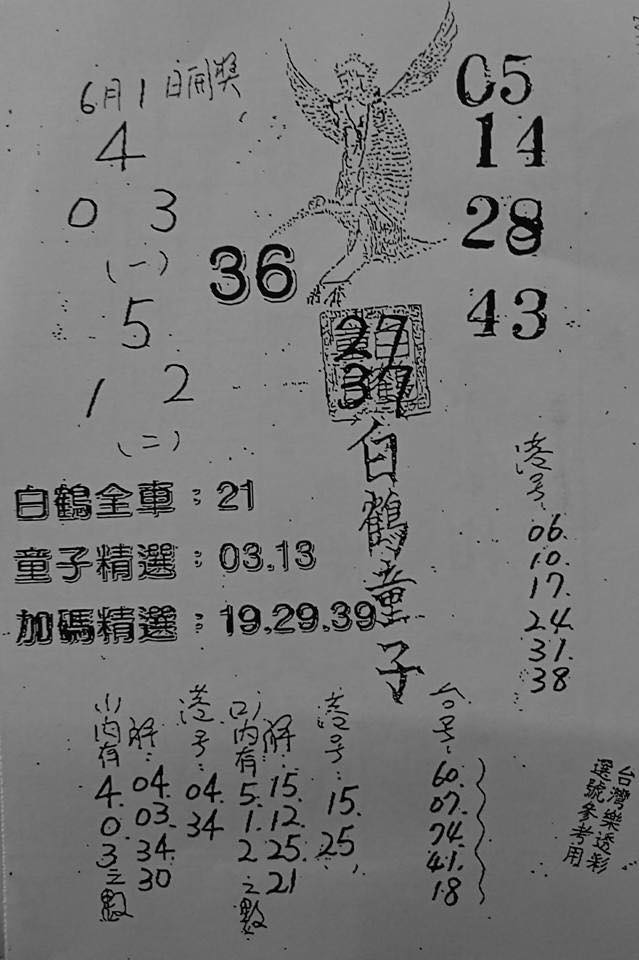 6月1日開獎
4
0 3
(一)
5
1 2
(二)
36
05
14
28
43
27
37
白鶴童子
白鶴全車：21
童子精選：03.13
加碼精選：19.29.39
港号：
06.
10.
17.
24.
31.
38
(一)内有
4.
0.
3之數
解：
04.
03.
34.
30
港号：
04
34
(二)内有
5.
1.
2之數
解：
15.
12.
25.
21
港号：
15.
25
台号：
60.
07.
74.
41.
18
台灣樂透彩
選號參考用